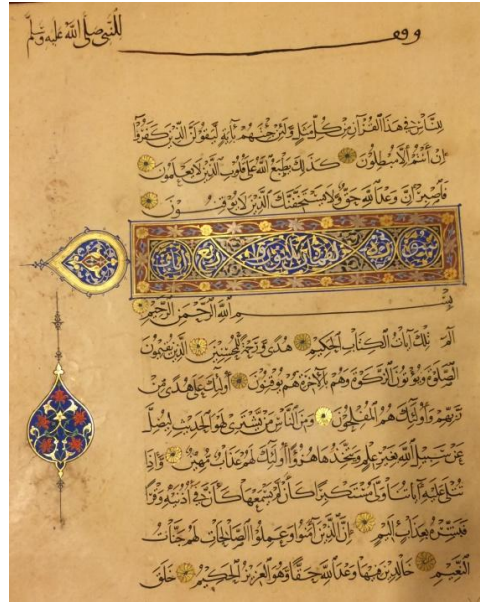 وقف للنبي صلى الله عليه وسلم
لِلنَّاسِ فِي هَذَا الْقُرْآنِ مِنْ كُلِّ مَثَلٍ وَلَئِنْ جِئْتَهُمْ بِآيَةٍ لَيَقُولَنَّ الَّذِينَ كَفَرُوا
إِنْ أَنْتُمْ إِلَّا مُبْطِلُونَ كَذَلِكَ يَطْبَعُ اللَّهُ عَلَى قُلُوبِ الَّذِينَ لَا يَعْلَمُونَ
فَاصْبِرْ إِنَّ وَعْدَ اللَّهِ حَقٌّ وَلَا يَسْتَخِفَّنَّكَ الَّذِينَ لَا يُوقِنُونَ
سورة لقمان اربع ايات
بِسْمِ اللَّهِ الرَّحْمَنِ الرَّحِيمِ
الم تِلْكَ آيَاتُ الْكِتَابِ الْحَكِيمِ هُدًى وَرَحْمَةً لِلْمُحْسِنِينَ الَّذِينَ يُقِيمُونَ
الصَّلَوةَ وَيُؤْتُونَ الزَّكَوةَ وَهُمْ بِالْآخِرَةِ هُمْ يُوقِنُونَ أُولَئِكَ عَلَى هُدًى مِنْ
رَبِّهِمْ وَأُولَئِكَ هُمُ الْمُفْلِحُونَ وَمِنَ النَّاسِ مَنْ يَشْتَرِي لَهْوَ الْحَدِيثِ لِيُضِلَّ
عَنْ سَبِيلِ اللَّهِ بِغَيْرِ عِلْمٍ وَيَتَّخِذَهَا هُزُوًا أُولَئِكَ لَهُمْ عَذَابٌ مُهِينٌ وَإِذَا
تُتْلَى عَلَيْهِ آيَاتُنَا وَلَّى مُسْتَكْبِرًا كَأَنْ لَمْ يَسْمَعْهَا كَأَنَّ فِي أُذُنَيْهِ وَقْرًا
فَبَشِّرْهُ بِعَذَابٍ أَلِيمٍ إِنَّ الَّذِينَ آمَنُوا وَعَمِلُوا الصَّالِحَاتِ لَهُمْ جَنَّاتُ
النَّعِيمِ خَالِدِينَ فِيهَا وَعْدَ اللَّهِ حَقًّا وَهُوَ الْعَزِيزُ الْحَكِيمُ خَلَقَ